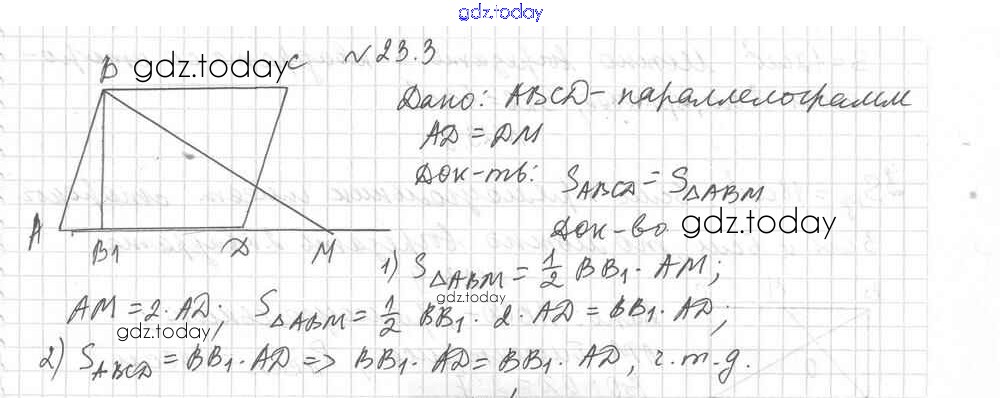 gdz.today
№ 23.3
B gdz.today C
Дано: ABCD - параллелограмм
AD = DM
Док-ть: S_ABCD = S_ΔABM
Док-во gdz.today
A B₁ D M
1) S_ΔABM = 1/2 BB₁ · AM;
AM = 2 · AD; S_ΔABM = 1/2 BB₁ · 2 · AD = BB₁ · AD;
gdz.today
gdz.today
2) S_ABCD = BB₁ · AD => BB₁ · AD = BB₁ · AD, ч.т.д.